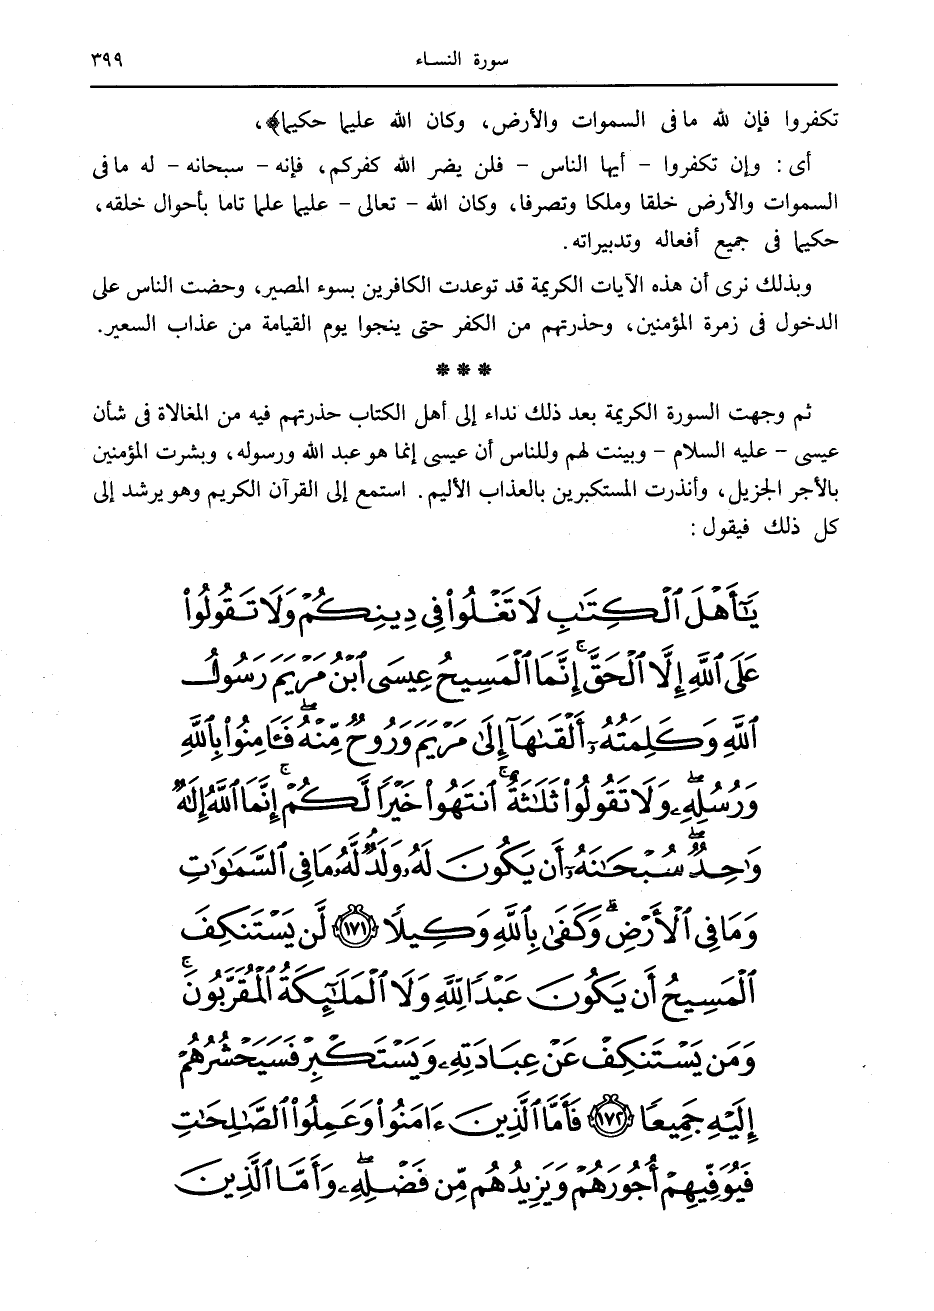 سورة النساء ٣٩٩
تكفروا فإن لله ما فى السموات والأرض، وكان الله عليما حكيما﴾،
أى : وإن تكفروا - أيها الناس - فلن يضر الله كفركم، فإنه - سبحانه - له ما فى
السموات والأرض خلقا وملكا وتصرفا، وكان الله - تعالى - عليما علما تاما بأحوال خلقه،
حكيما فى جميع أفعاله وتدبيراته.
وبذلك نرى أن هذه الآيات الكريمة قد توعدت الكافرين بسوء المصير، وحضت الناس على
الدخول فى زمرة المؤمنين، وحذرتهم من الكفر حتى ينجوا يوم القيامة من عذاب السعير.
* * *
ثم وجهت السورة الكريمة بعد ذلك نداء إلى أهل الكتاب حذرتهم فيه من المغالاة فى شأن
عيسى - عليه السلام - وبينت لهم وللناس أن عيسى إنما هو عبد الله ورسوله، وبشرت المؤمنين
بالأجر الجزيل، وأنذرت المستكبرين بالعذاب الأليم. استمع إلى القرآن الكريم وهو يرشد إلى
كل ذلك فيقول :
يَٰٓأَهْلَ ٱلْكِتَٰبِ لَا تَغْلُوا۟ فِى دِينِكُمْ وَلَا تَقُولُوا۟
عَلَى ٱللَّهِ إِلَّا ٱلْحَقَّ ۚ إِنَّمَا ٱلْمَسِيحُ عِيسَى ٱبْنُ مَرْيَمَ رَسُولُ
ٱللَّهِ وَكَلِمَتُهُۥٓ أَلْقَىٰهَآ إِلَىٰ مَرْيَمَ وَرُوحٌ مِّنْهُ ۖ فَـَٔامِنُوا۟ بِٱللَّهِ
وَرُسُلِهِۦ ۖ وَلَا تَقُولُوا۟ ثَلَٰثَةٌ ۚ ٱنتَهُوا۟ خَيْرًا لَّكُمْ ۚ إِنَّمَا ٱللَّهُ إِلَٰهٌ
وَٰحِدٌ ۖ سُبْحَٰنَهُۥٓ أَن يَكُونَ لَهُۥ وَلَدٌ ۘ لَّهُۥ مَا فِى ٱلسَّمَٰوَٰتِ
وَمَا فِى ٱلْأَرْضِ ۗ وَكَفَىٰ بِٱللَّهِ وَكِيلًا ١٧١ لَّن يَسْتَنكِفَ
ٱلْمَسِيحُ أَن يَكُونَ عَبْدًا لِّلَّهِ وَلَا ٱلْمَلَٰٓئِكَةُ ٱلْمُقَرَّبُونَ ۚ
وَمَن يَسْتَنكِفْ عَنْ عِبَادَتِهِۦ وَيَسْتَكْبِرْ فَسَيَحْشُرُهُمْ
إِلَيْهِ جَمِيعًا ١٧٢ فَأَمَّا ٱلَّذِينَ ءَامَنُوا۟ وَعَمِلُوا۟ ٱلصَّٰلِحَٰتِ
فَيُوَفِّيهِمْ أُجُورَهُمْ وَيَزِيدُهُم مِّن فَضْلِهِۦ ۖ وَأَمَّا ٱلَّذِينَ